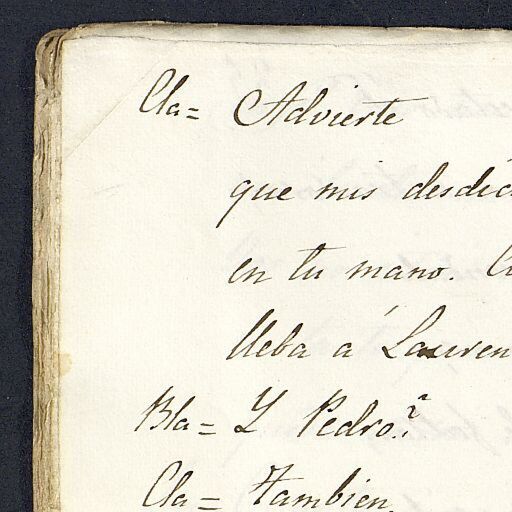 Cla= Advierte
que mis desdic
en tu mano.
lleba á Lauren
Bla= Y Pedro?
Cla= Tambien.